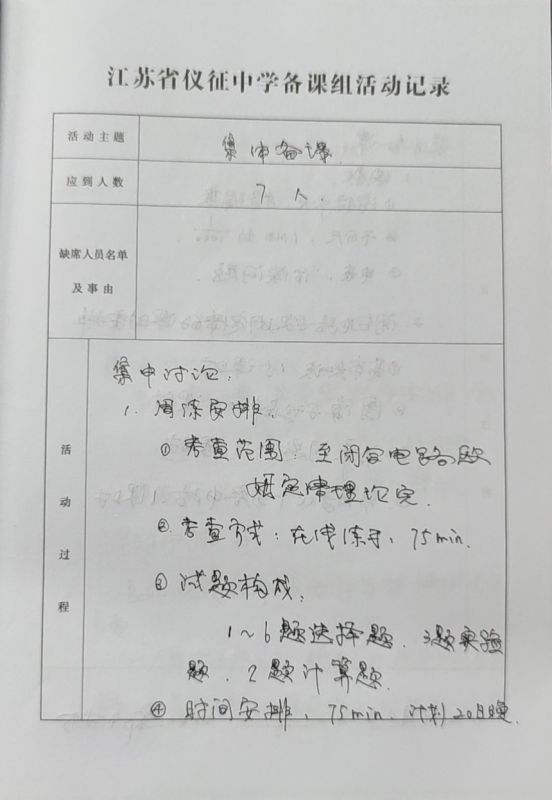 江苏省仪征中学备课组活动记录
活动主题
集体备课
应到人数
7人
缺席人员名单
及事由
活动过程
集中讨论:
1. 周练安排:
① 考查范围: 至闭合电路欧
姆定律理论完.
② 考查方式: 在线练习, 75min.
③ 试题构成:
1~6题选择题. 3题实验
题. 2题计算题.
④ 时间安排, 75min. 计划20日晚.